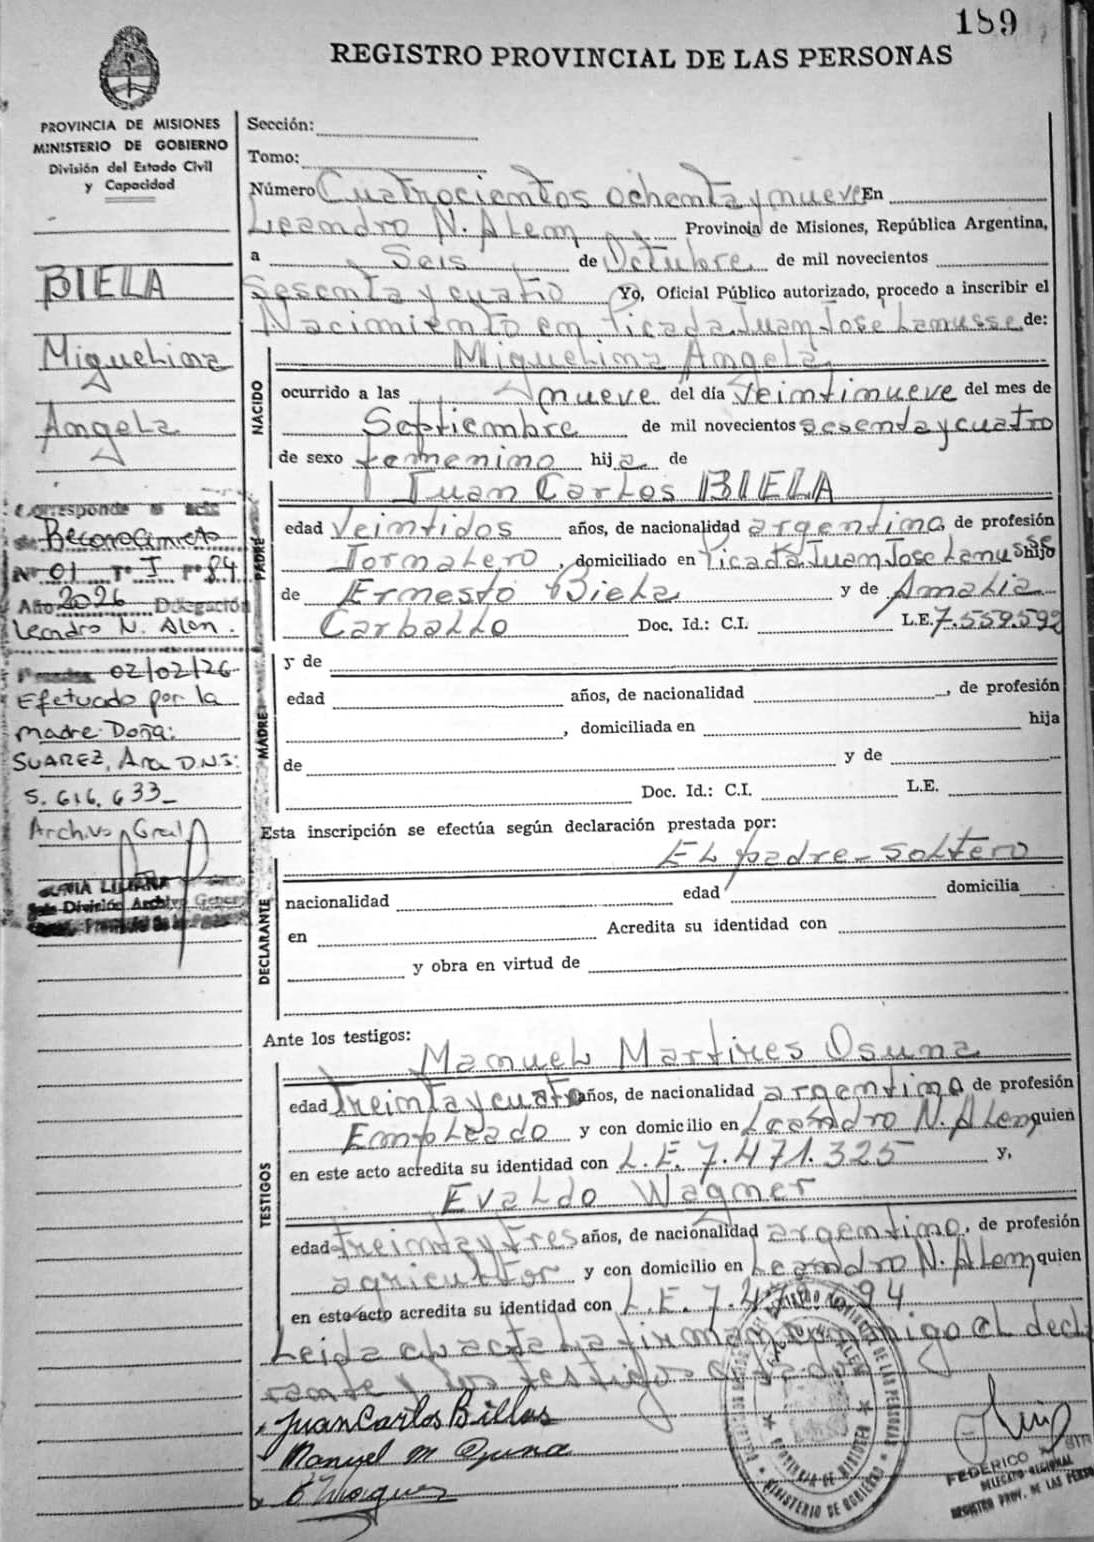 189
REGISTRO PROVINCIAL DE LAS PERSONAS
PROVINCIA DE MISIONES
MINISTERIO DE GOBIERNO
División del Estado Civil
y Capacidad
BIELA
Miguelina
Angela
Corresponde a acta
de Reconocimieto
Nº 01 Tº I Fº 84
Año 2026 Delegación
Leandro N. Alen.
02/02/26
Efetuado por la
madre Doña:
SUAREZ, Ana D.N.I:
5.616.633_
Archivo Gral
LILIANA
División Archivo General
Sección:
Tomo:
Número Cuatrocientos ochenta y nueve En
Leandro N. Alem Provincia de Misiones, República Argentina,
a Seis de Octubre de mil novecientos
Sesenta y cuatro Yo, Oficial Público autorizado, procedo a inscribir el
Nacimiento en Picada Juan José Lanusse de:
NACIDO
Miguelina Angela
ocurrido a las nueve del día veintinueve del mes de
Septiembre de mil novecientos sesenta y cuatro
de sexo femenino hija de
PADRE
Juan Carlos BIELA
edad Veintidos años, de nacionalidad argentina, de profesión
Jornalero, domiciliado en Picada Juan Jose Lanusse hijo
de Ernesto Biela y de Amalia
Carballo Doc. Id.: C.I. L.E. 7.559.592
MADRE
y de
edad años, de nacionalidad , de profesión
, domiciliada en hija
de y de
Doc. Id.: C.I. L.E.
Esta inscripción se efectúa según declaración prestada por:
DECLARANTE
El padre - soltero
nacionalidad edad domicilia
en Acredita su identidad con
y obra en virtud de
Ante los testigos:
TESTIGOS
Manuel Martires Osuna
edad treinta y cuatro años, de nacionalidad argentino de profesión
Empleado y con domicilio en Leandro N. Alem quien
en este acto acredita su identidad con L.E. 7.471.325 y,
Evaldo Wagner
edad treinta y tres años, de nacionalidad argentino, de profesión
agricultor y con domicilio en Leandro N. Alem quien
en este acto acredita su identidad con L.E. 7.47 94
Leida el acta la firman conmigo el decla
rante y los testigos
Juan Carlos Billas
Manuel M Osuna
REGISTRO PROVINCIAL DE LAS PERSONAS
MINISTERIO DE GOBIERNO
PROVINCIA DE MISIONES
FEDERICO
DELEGADO REGIONAL
REGISTRO PROV. DE LAS PERS